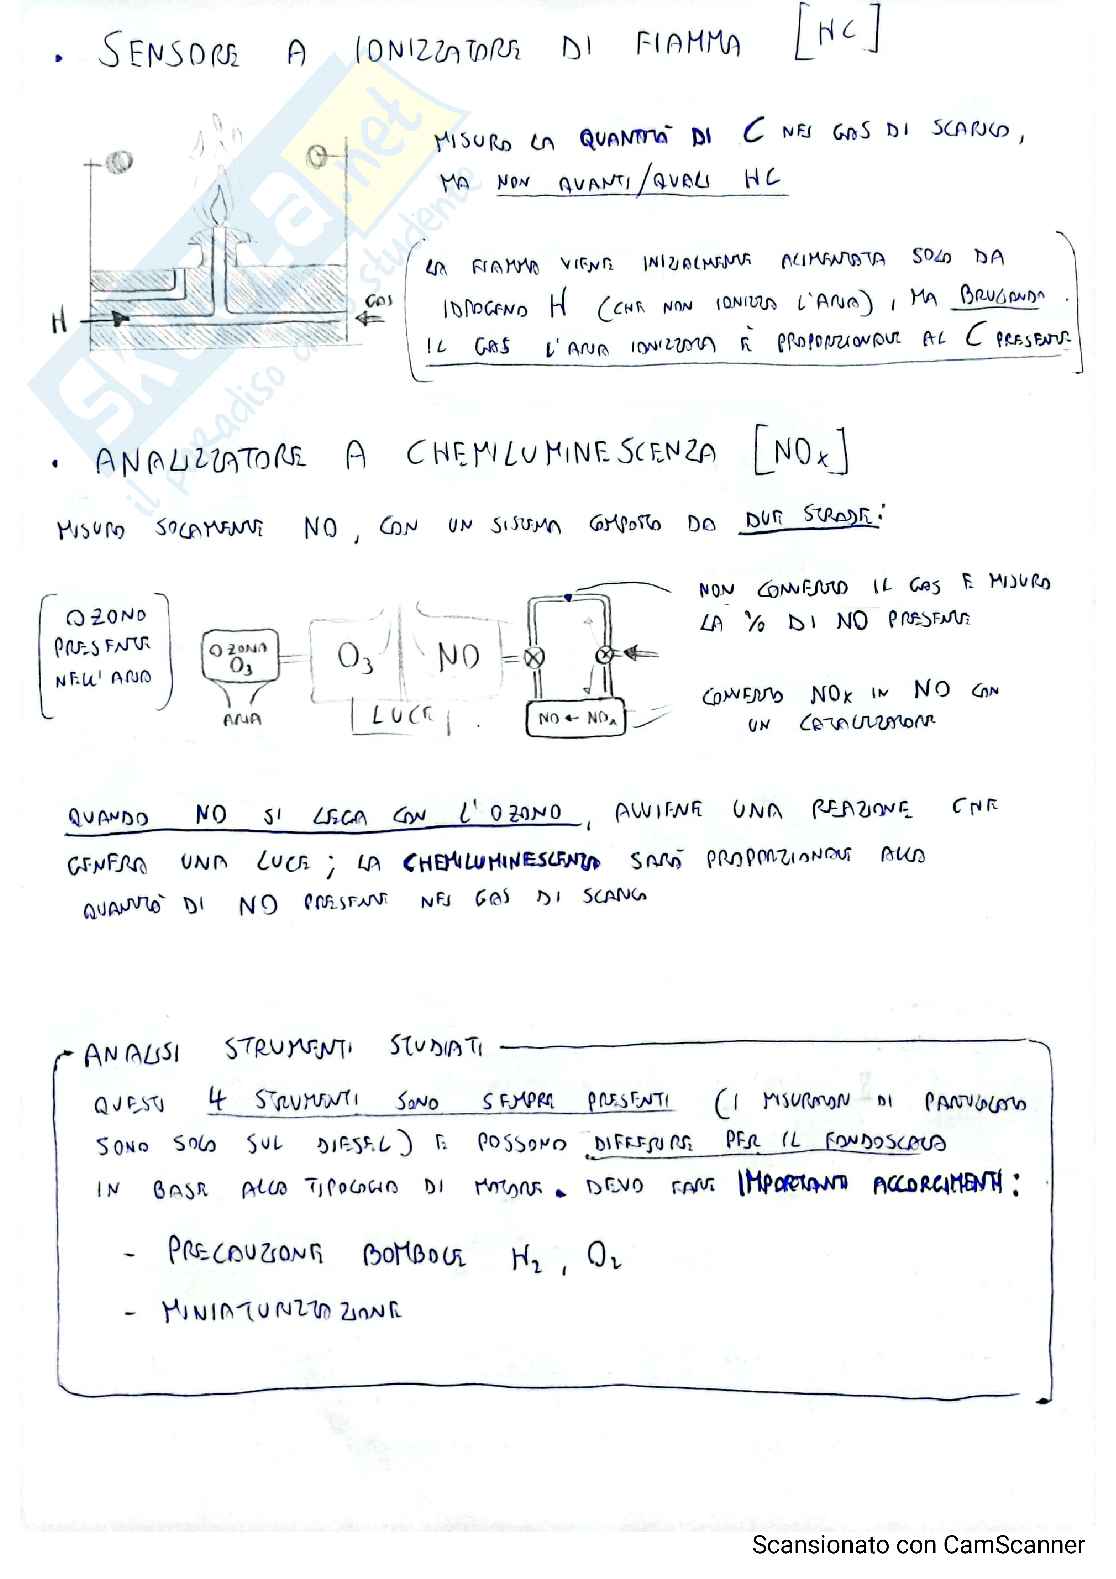 • SENSORE A IONIZZATORE DI FIAMMA [HC]
MISURO LA QUANTITÀ DI C NEI GAS DI SCARICO,
MA NON QUANTI/QUALI HC
LA FIAMMA VIENE INIZIALMENTE ALIMENTATA SOLO DA
IDROGENO H (CHE NON IONIZZA L'ARIA), MA BRUCIANDO
IL GAS L'ARIA IONIZZATA È PROPORZIONALE AL C PRESENTE
H
GAS
• ANALIZZATORE A CHEMILUMINESCENZA [NOx]
MISURO SOLAMENTE NO, CON UN SISTEMA COMPOSTO DA DUE STRADE:
[OZONO
PRESENTE
NELL'ARIA]
OZONO
O3
ARIA
O3
NO
LUCE
NO ← NOx
NON CONVERTO IL GAS E MISURO
LA % DI NO PRESENTE
CONVERTO NOx IN NO CON
UN CATALIZZATORE
QUANDO NO SI LEGA CON L'OZONO, AVVIENE UNA REAZIONE CHE
GENERA UNA LUCE; LA CHEMILUMINESCENZA SARÀ PROPORZIONALE ALLA
QUANTITÀ DI NO PRESENTE NEI GAS DI SCARICO
ANALISI STRUMENTI STUDIATI
QUESTI 4 STRUMENTI SONO SEMPRE PRESENTI (I MISURATORI DI PARTICOLATO
SONO SOLO SUL DIESEL) E POSSONO DIFFERIRE PER IL FONDOSCALA
IN BASE ALLA TIPOLOGIA DI MOTORE. DEVO FARE IMPORTANTI ACCORGIMENTI:
- PRECAUZIONE BOMBOLE H2, O2
- MINIATURIZZAZIONE
SKUOLA.net
il paradiso dello studente
Scansionato con CamScanner